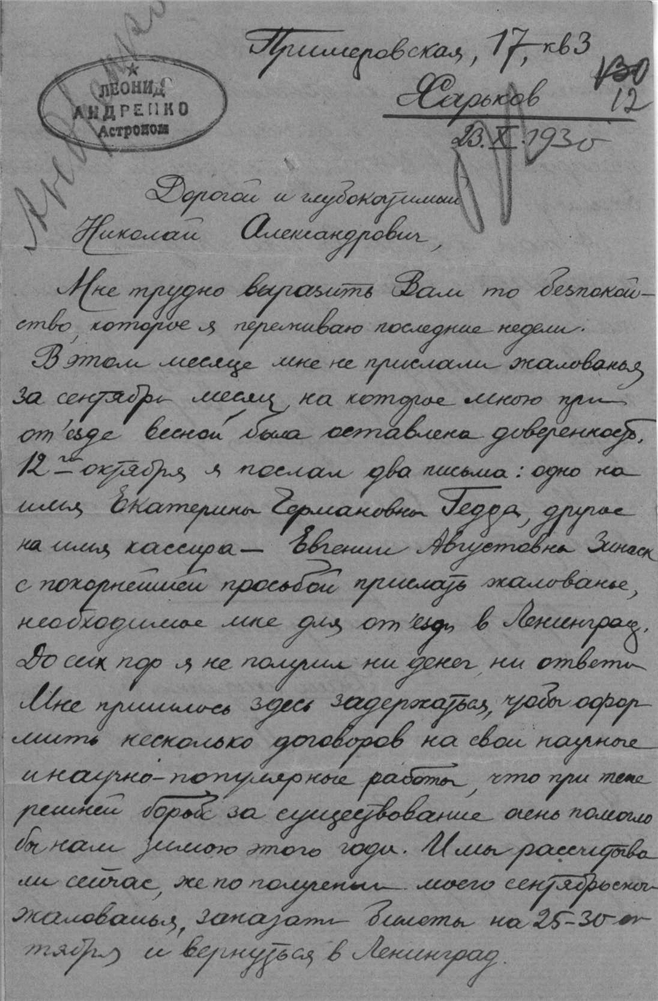 Примеровская, 17, кв 3
130
12
Харьков
23.X.1930
★
ЛЕОНИД
АНДРЕНКО
Астроном
Андренко
Дорогой и глубокочтимый
Николай Александрович,
Мне трудно выразить Вам то безпокой-
ство, которое я переживаю последние недели.
В этом месяце мне не прислали жалованья
за сентябрь месяц, на которое мною при
от'езде весной была оставлена доверенность.
12го октября я послал два письма: одно на
имя Екатерины Германовны Гедда, другое
на имя кассира — Евгении Августовны
с покорнейшей просьбой прислать жалованье,
необходимое мне для от'езда в Ленинград.
До сих пор я не получил ни денег, ни ответа
Мне пришлось здесь задержаться, чтобы офор
мить несколько договоров на свои научные
и научно-популярные работы, что при тепе
решней борьбе за существование очень помогло
бы нам зимою этого года. И мы рассчитыва
ли сейчас, же по получении моего сентябрьского
жалованья, заказать билеты на 25-30 ок
тября и вернуться в Ленинград.